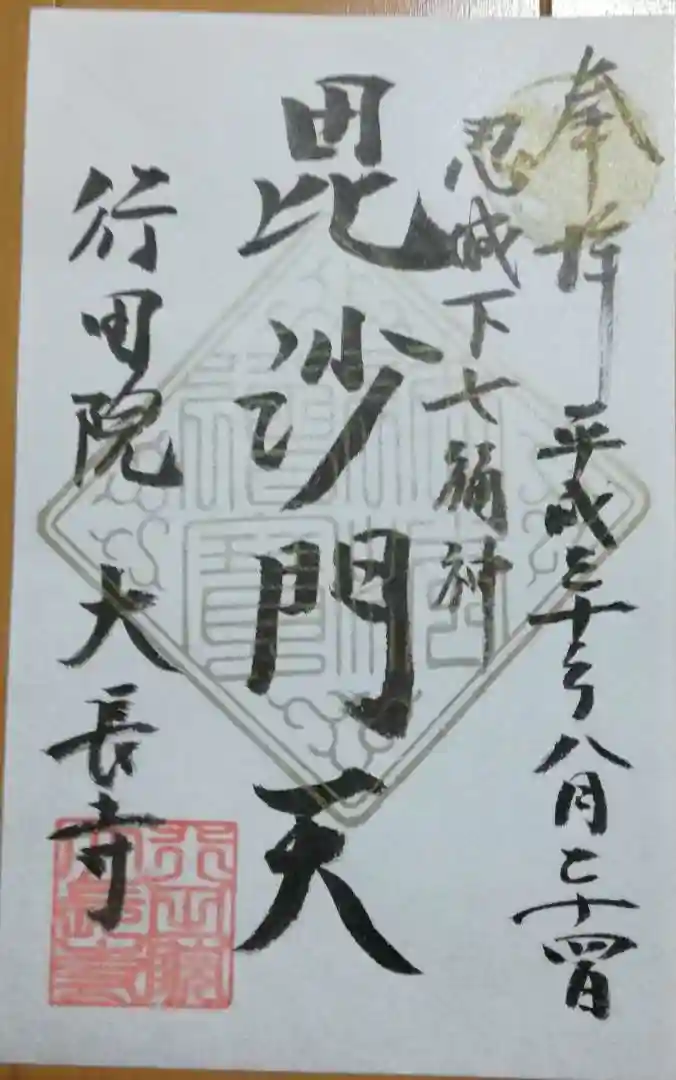 奉拝
平成三十年八月二十四日
忍城下七福神
毘沙門天
行田院 大長寺